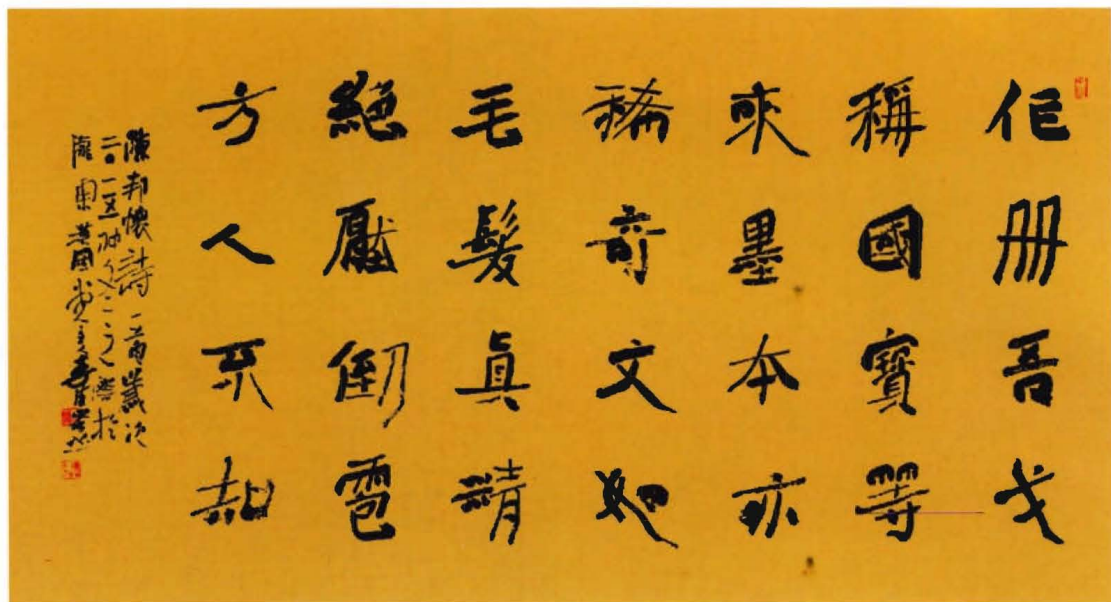 作册吾戈
稱國寶尋
來墨本亦
稀奇文如
毛髮真精
絕厭倒雹
方人不知
陳邦懷詩一首歲次
二〇一五於
隴東